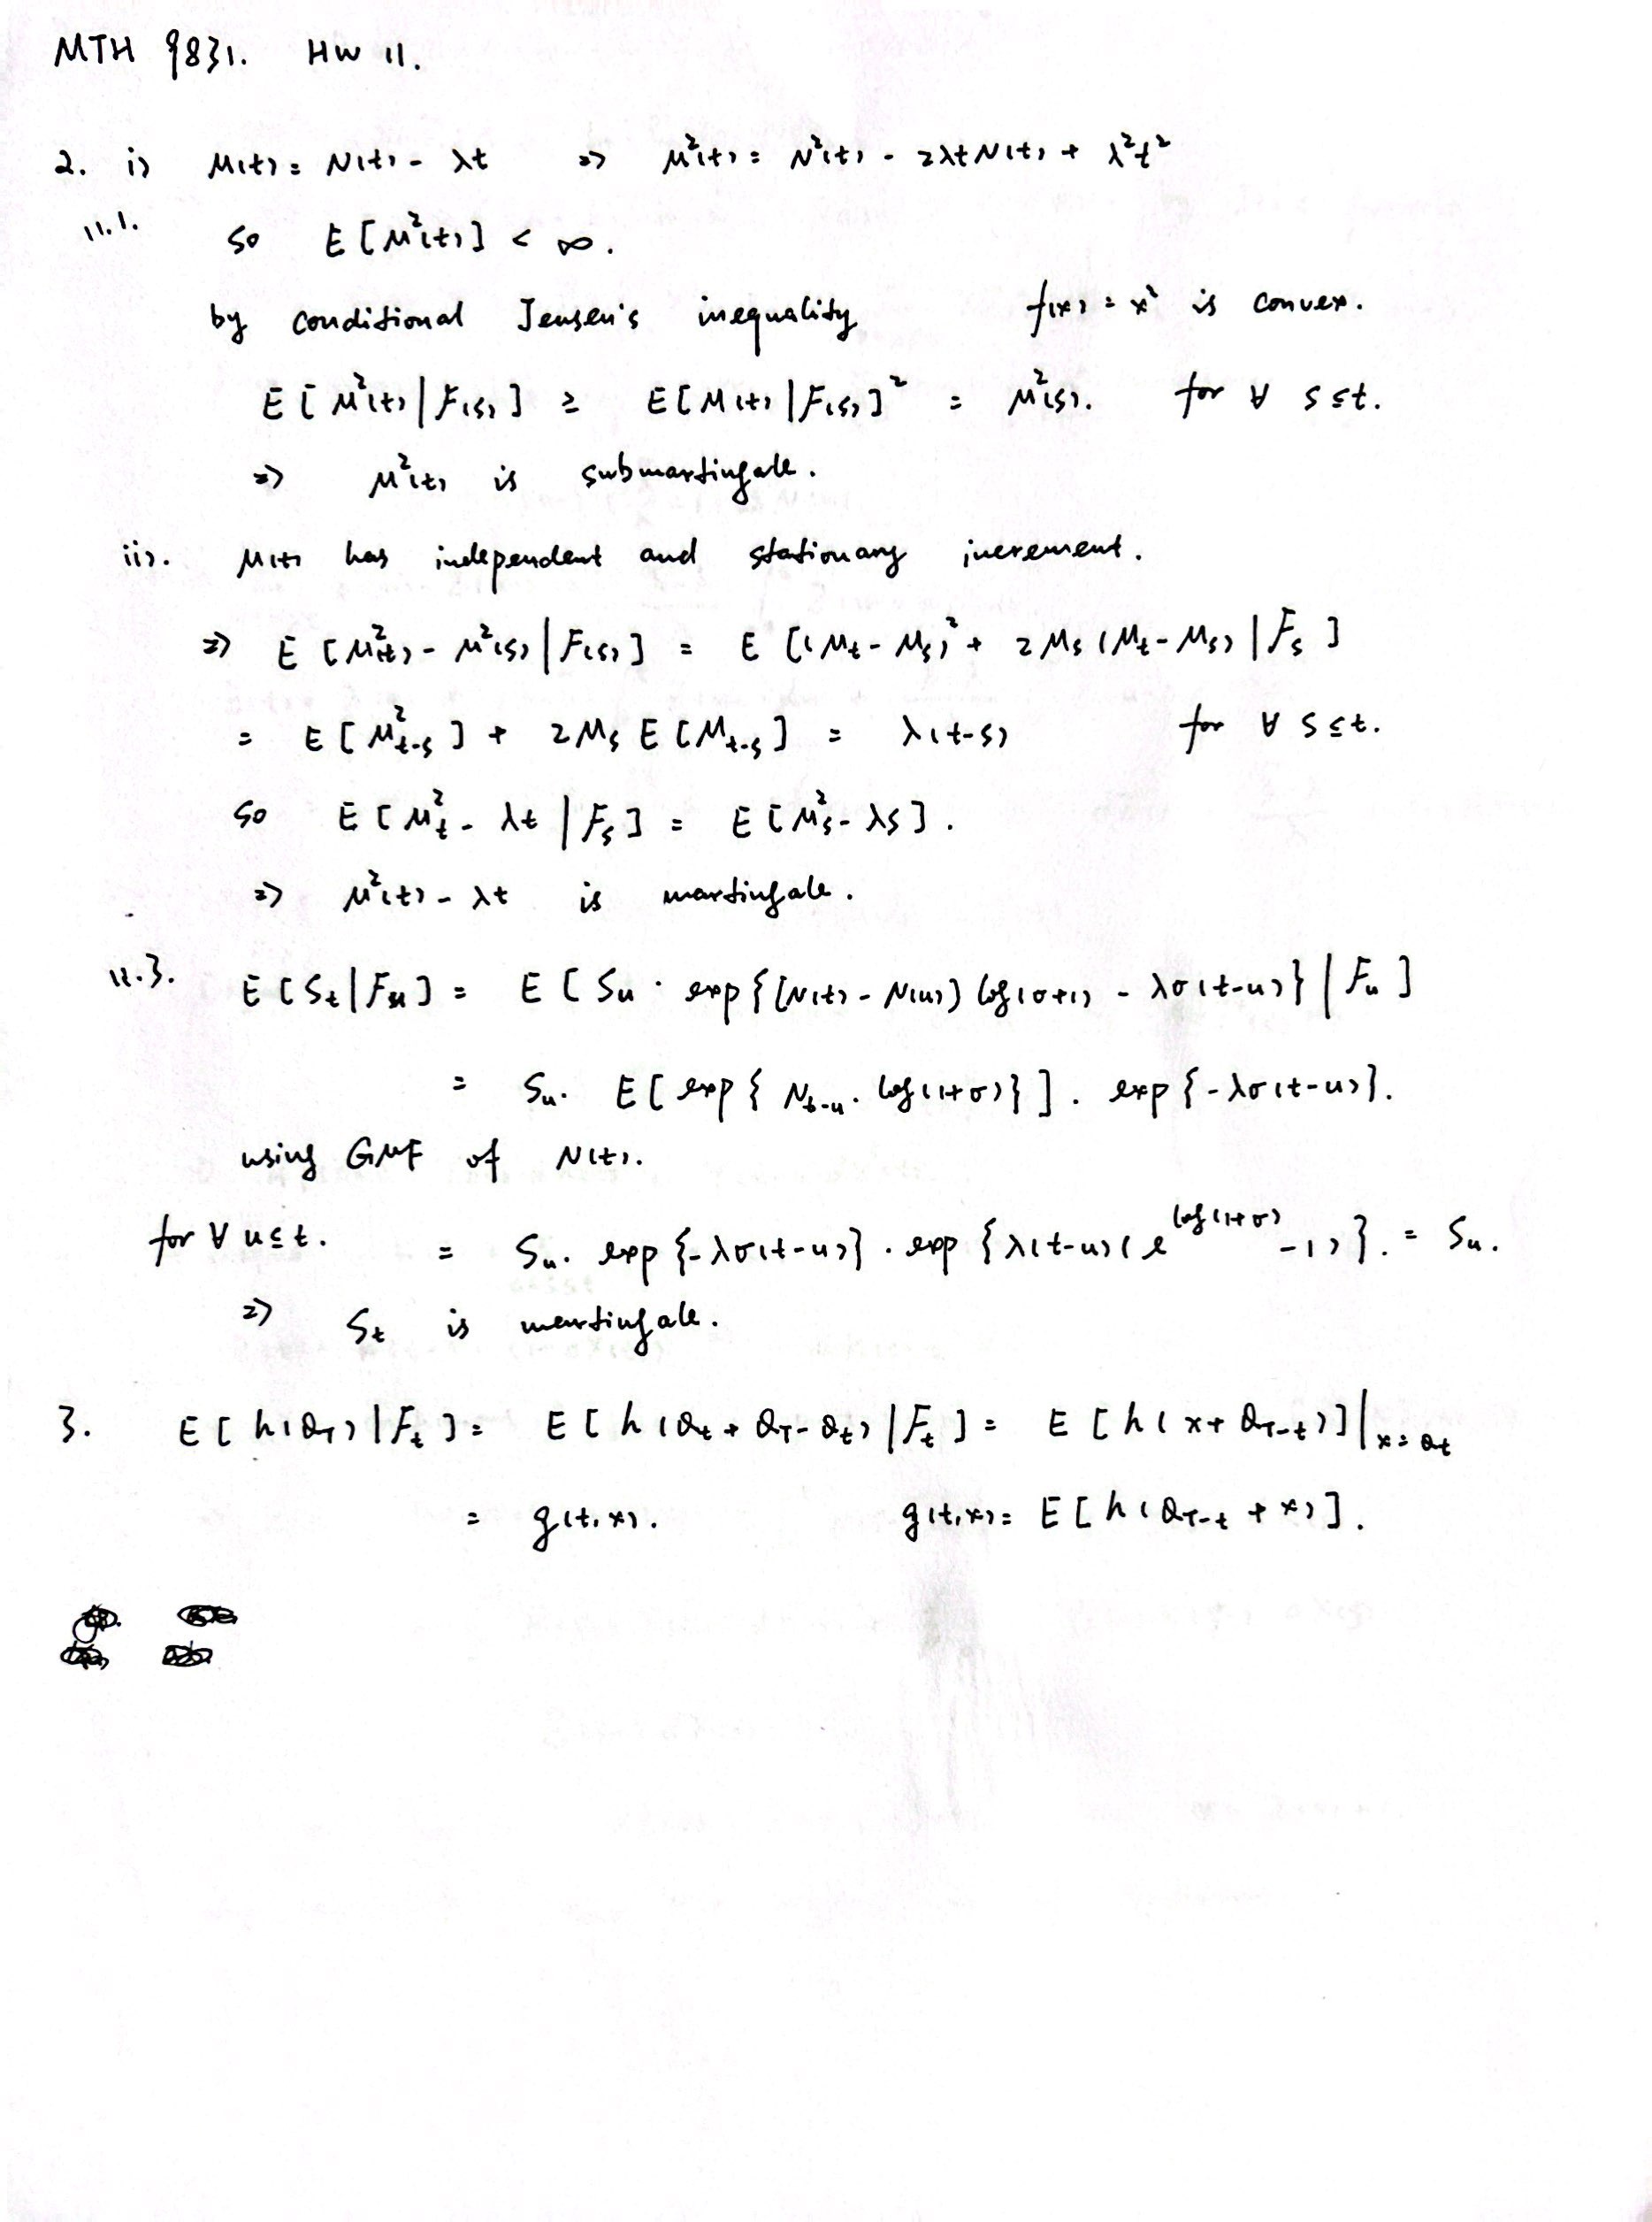 MTH 9831. HW 11.
2. i) M(t) = N(t) - λt => M²(t) = N²(t) - 2λtN(t) + λ²t²
11.1. so E[M²(t)] < ∞.
by conditional Jensen's inequality f(x) = x² is convex.
E[M²(t)|F(s)] ≥ E[M(t)|F(s)]² = M²(s). for ∀ s≤t.
=> M²(t) is submartingale.
ii). M(t) has independent and stationary increment.
=> E[M²(t) - M²(s)|F(s)] = E[(M_t - M_s)² + 2M_s(M_t - M_s)|F_s]
= E[M²_{t-s}] + 2M_s E[M_{t-s}] = λ(t-s) for ∀ s≤t.
so E[M²_t - λt|F_s] = E[M²_s - λs].
=> M²(t) - λt is martingale.
11.3. E[S_t|F_u] = E[S_u · exp{(N(t) - N(u)) log(σ+1) - λσ(t-u)}|F_u]
= S_u. E[exp{N_{t-u}. log(1+σ)}]. exp{-λσ(t-u)}.
using GMF of N(t).
for ∀ u≤t. = S_u. exp{-λσ(t-u)} . exp{λ(t-u)(e^{log(1+σ)} - 1)}. = S_u.
=> S_t is martingale.
3. E[h(Q_T)|F_t] = E[h(Q_t + Q_T - Q_t)|F_t] = E[h(x + Q_{T-t})]|_{x=Q_t}
= g(t,x). g(t,x) = E[h(Q_{T-t} + x)].